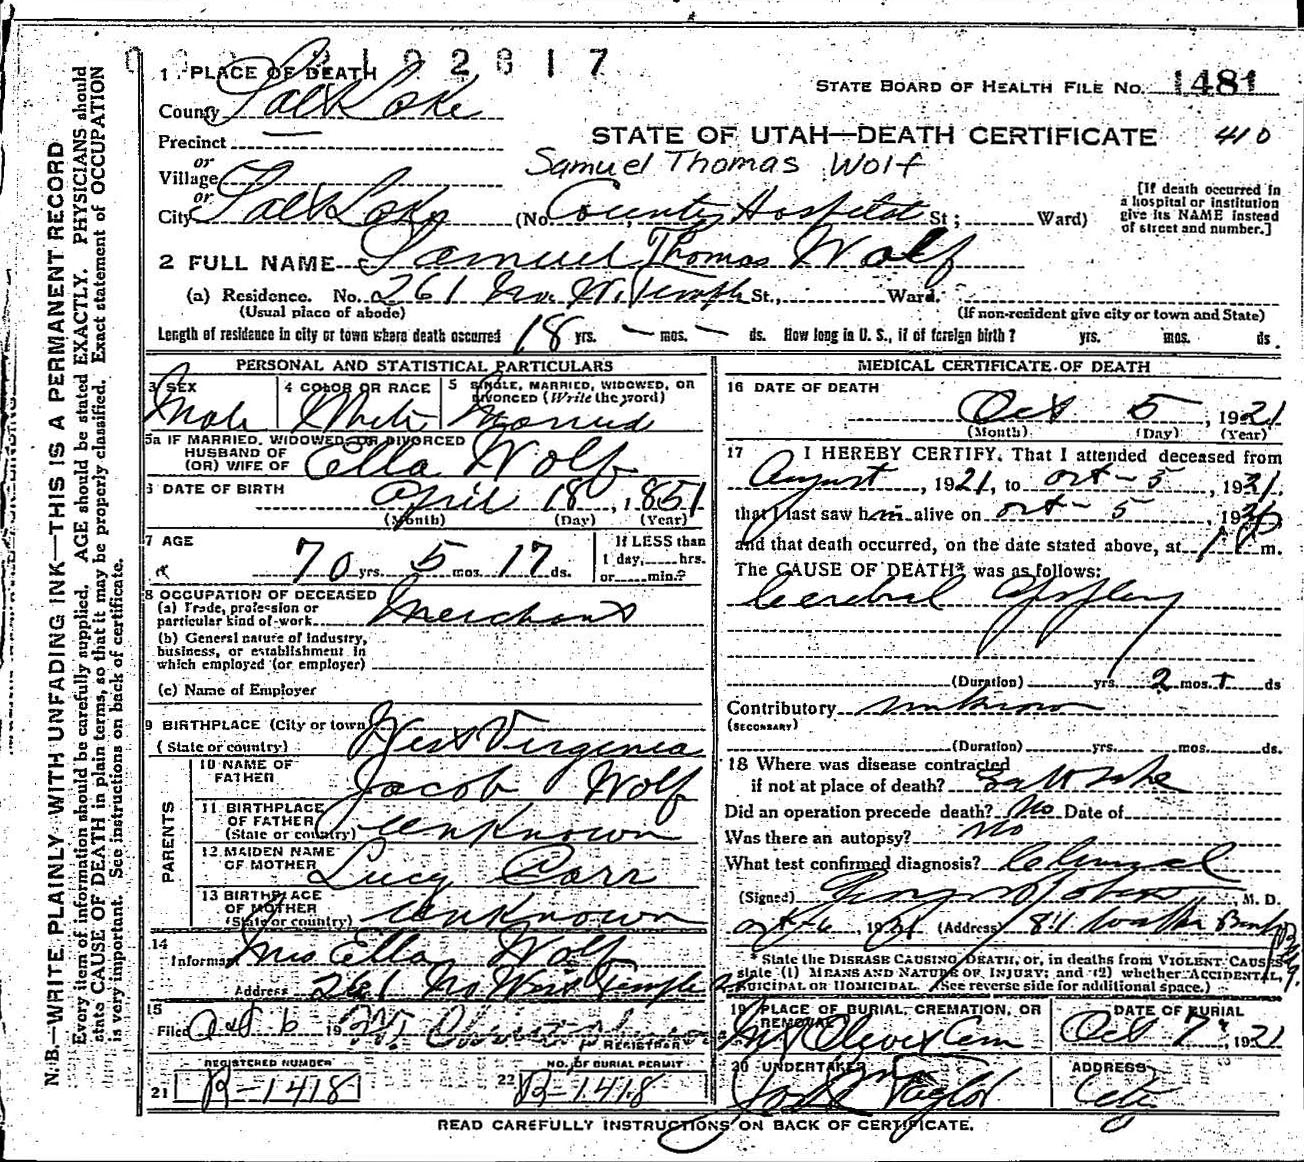 1 PLACE OF DEATH
STATE BOARD OF HEALTH FILE NO. 1481
County Salt Lake
STATE OF UTAH—DEATH CERTIFICATE 410
Precinct
Samuel Thomas Wolf
or
Village
or
City Salt Lake (No. County Hospital St; Ward)
[If death occurred in a hospital or institution give its NAME instead of street and number.]
2 FULL NAME Samuel Thomas Wolf
(a) Residence. No. 261 No. W. Temple St., Ward.
(Usual place of abode) (If non-resident give city or town and State)
Length of residence in city or town where death occurred 18 yrs. — mos. — ds. How long in U. S., if of foreign birth? yrs. mos. ds.
N. B.—WRITE PLAINLY WITH UNFADING INK—THIS IS A PERMANENT RECORD
Every item of information should be carefully supplied. AGE should be stated EXACTLY. PHYSICIANS should
state CAUSE OF DEATH in plain terms, so that it may be properly classified. Exact statement of OCCUPATION
is very important. See instructions on back of certificate.
PERSONAL AND STATISTICAL PARTICULARS
3 SEX Male
4 COLOR OR RACE White
5 SINGLE, MARRIED, WIDOWED, OR DIVORCED (Write the word) Married
5a IF MARRIED, WIDOWED, OR DIVORCED
HUSBAND OF
(OR) WIFE OF Ella Wolf
6 DATE OF BIRTH April 18, 1851
(Month) (Day) (Year)
7 AGE
70 yrs. 5 mos. 17 ds.
If LESS than
1 day, hrs.
or min.?
8 OCCUPATION OF DECEASED
(a) Trade, profession or
particular kind of work Merchant
(b) General nature of industry,
business, or establishment in
which employed (or employer)
(c) Name of Employer
9 BIRTHPLACE (City or town)
(State or country) West Virginia
PARENTS
10 NAME OF
FATHER Jacob Wolf
11 BIRTHPLACE
OF FATHER
(State or country) Unknown
12 MAIDEN NAME
OF MOTHER Lucy Carr
13 BIRTHPLACE
OF MOTHER
(State or country) Unknown
14
Informant Mrs Ella Wolf
Address 261 No West Temple
15
Filed Oct 6 19
REGISTRAR
REGISTERED NUMBER
21 B-1418
NO. OF BURIAL PERMIT
22 B-1418
MEDICAL CERTIFICATE OF DEATH
16 DATE OF DEATH
Oct 5, 1921
(Month) (Day) (Year)
17 I HEREBY CERTIFY, That I attended deceased from
August, 1921, to oct - 5, 1921
that I last saw him alive on oct - 5, 1921
and that death occurred, on the date stated above, at m.
The CAUSE OF DEATH* was as follows:
Cerebral Apoplexy
(Duration) yrs. 2 mos. + ds
Contributory unknown
(SECONDARY)
(Duration) yrs. mos. ds.
18 Where was disease contracted
if not at place of death? Salt Lake
Did an operation precede death? No Date of
Was there an autopsy? No
What test confirmed diagnosis? Clinical
(Signed) M. D.
Oct-6, 1921 (Address) 811 Walker Bank Bldg.
* State the DISEASE CAUSING DEATH, or, in deaths from VIOLENT CAUSES
state (1) MEANS AND NATURE OF INJURY; and (2) whether ACCIDENTAL,
SUICIDAL OR HOMICIDAL. (See reverse side for additional space.)
19 PLACE OF BURIAL, CREMATION, OR
REMOVAL
Mt Olivet Cem
DATE OF BURIAL
Oct 7, 1921
20 UNDERTAKER
Jos Wm Taylor
ADDRESS
City
READ CAREFULLY INSTRUCTIONS ON BACK OF CERTIFICATE.